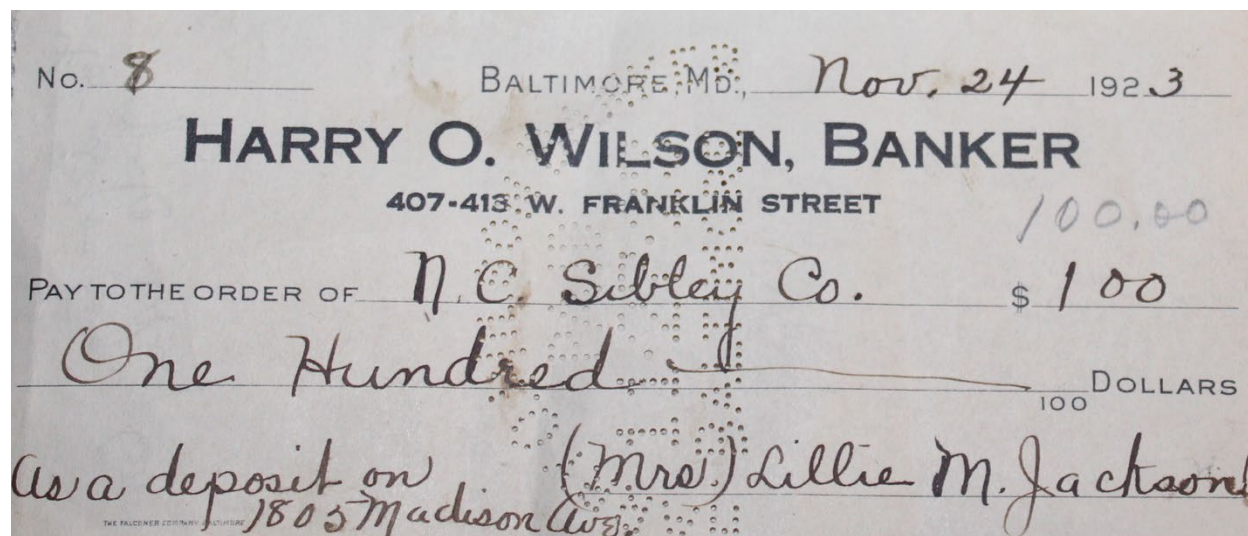 No. 8 BALTIMORE, MD., Nov. 24 1923
HARRY O. WILSON, BANKER
407-413 W. FRANKLIN STREET
100.00
PAY TO THE ORDER OF N. C. Sibley Co. $ 100
One Hundred 100 DOLLARS
As a deposit on (Mrs.) Lillie M. Jackson
1805 Madison Ave.
THE FALCONER COMPANY, BALTIMORE